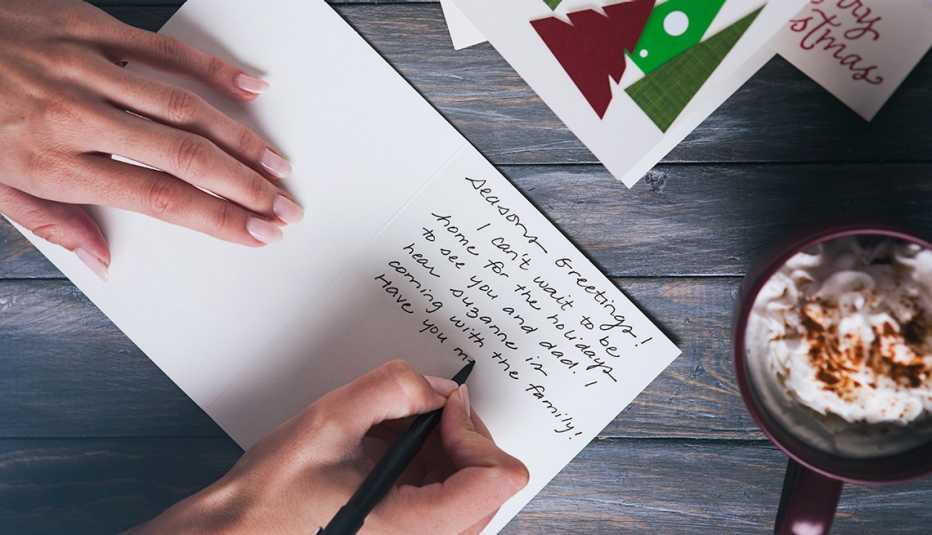 Seasons Greetings!
I can't wait to be
home for the holidays
to see you and dad! I
hear suzanne is
coming with the family!
Have you m
rry
stmas